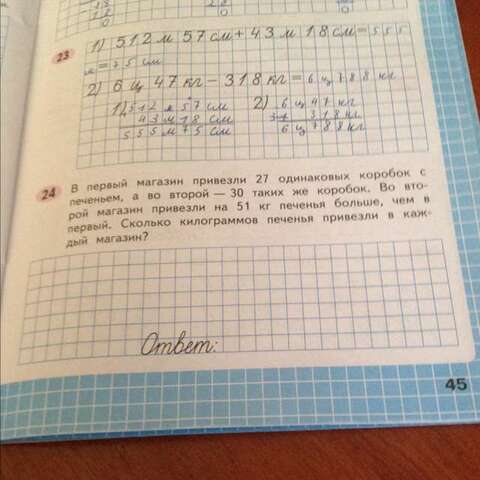 23
1) 512 м 57 см + 43 м 18 см = 555
м = 75 см
2) 6 ц 47 кг - 318 кг = 6 ц 788 кг
1) 512 м 57 см
43 м 18 см
555 м 75 см
2) 6 ц 47 кг
318 кг
6 ц 788 кг
24
В первый магазин привезли 27 одинаковых коробок с
печеньем, а во второй — 30 таких же коробок. Во вто-
рой магазин привезли на 51 кг печенья больше, чем в
первый. Сколько килограммов печенья привезли в каж-
дый магазин?
Ответ:
45